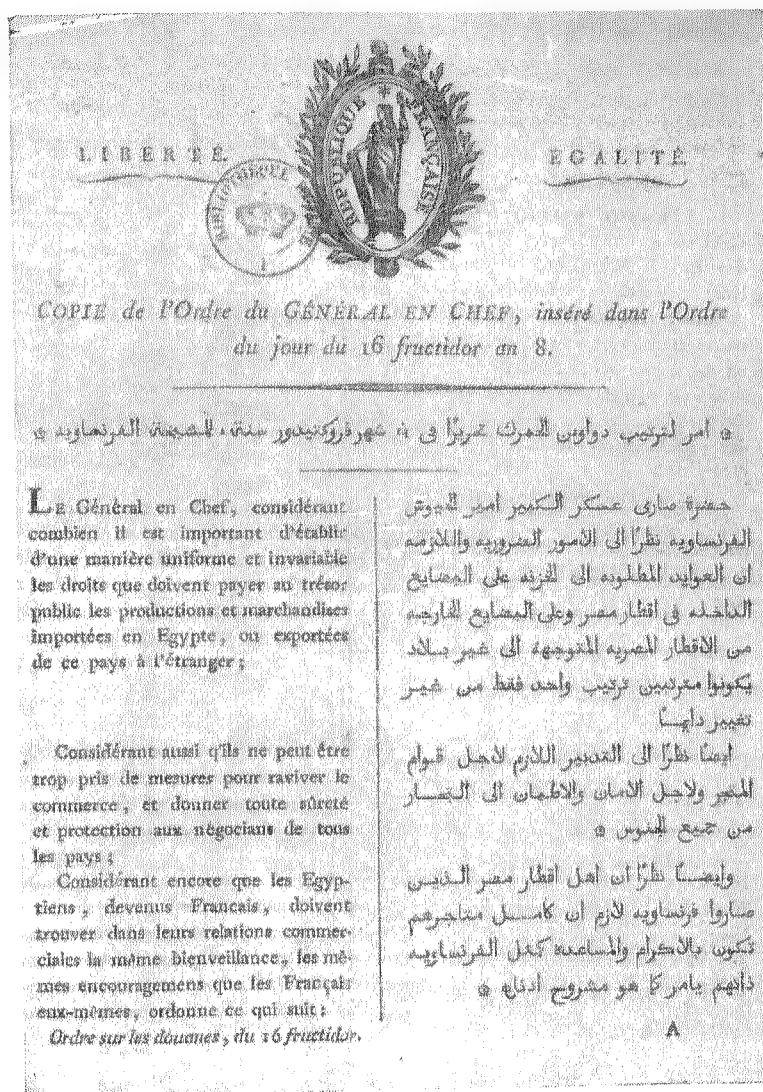 LIBERTÉ.
RÉPUBLIQUE FRANÇAISE
EGALITÉ.
BIBLIOTHEQUE
COPIE de l'Ordre du GÉNÉRAL EN CHEF, inséré dans l'Ordre
du jour du 16 fructidor an 8.
امر لترتيب دواوين الجمرك تحريرًا فى شهر فروكتيدور سنة المشيخة الفرنساويه
LE Général en Chef, considérant
combien il est important d'établir
d'une manière uniforme et invariable
les droits que doivent payer au trésor
public les productions et marchandises
importées en Egypte, ou exportées
de ce pays à l'étranger;
Considérant aussi q'ils ne peut être
trop pris de mesures pour raviver le
commerce, et donner toute sûreté
et protection aux négocians de tous
les pays;
Considérant encore que les Egyp-
tiens, devenus Français, doivent
trouver dans leurs relations commer-
ciales la même bienveillance, les mê-
mes encouragemens que les Français
eux-mêmes, ordonne ce qui suit:
Ordre sur les douanes, du 16 fructidor.
حضرة صارى عسكر الكبير امير الجيوش
الفرنساويه نظرًا الى الامور الضروريه واللازمه
ان العوايد المطلوبه الى الخزنه على البضايع
الداخله فى اقطار مصر وعلى البضايع الخارجه
من الاقطار المصريه المتوجهة الى غير بلاد
يكونوا مترتبين ترتيب واحد فقط من غير
تغيير دايمـًا
ايضًا نظرًا الى التدبير اللازم لاجل قوام
المتجر ولاجل الامان والاطمان الى التجار
من جميع الجنوس
وايضًا نظرًا ان اهل اقطار مصر الذين
صاروا فرنساويه لازم ان كامل متاجرهم
تكون بالاكرام والمساعده كمثل الفرنساويه
ذاتهم يامر كما هو مشروح ادناه
A